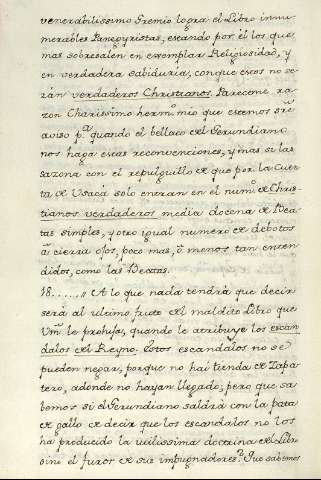 venerabilissimo Gremio logra el Libro innu-
merables Panegyristas, estando por él los que
mas sobresalen en exemplar Religiosidad, y
en verdadera Sabiduria, conque esos no se-
rán verdaderos Christianos. Pareceme ra-
zon Charissimo herm.º mio que estemos sre
aviso p.ª quando el bellaco del Gerundiano
nos haga esas reconvenciones, y mas si las
sazona con el repulguillo de que por la cuen-
ta de Usacá solo entran en el num.º de Chris-
tianos verdaderos media docena de Bea-
tas simples, y otro igual numero de debotos
à cierra ojos, poco mas, ò menos tan enten-
didos, como las Beatas.
18......,, A lo que nada tendrá que decir
será al ultimo fruto del maldito Libro que
Vm.d le prohija, quando le atribuye los escán-
dalos del Reyno. Estos escandalos no se
pueden negar, porque no hai tienda de Zapa-
tero, adonde no hayan llegado; pero que sa-
bemos si el Gerundiano saldrá con la pata
de gallo de decir que los escandalos no los
ha producido la utilissima doctrina del Libro
sino el furor de sus impugnadores? Que sabemos